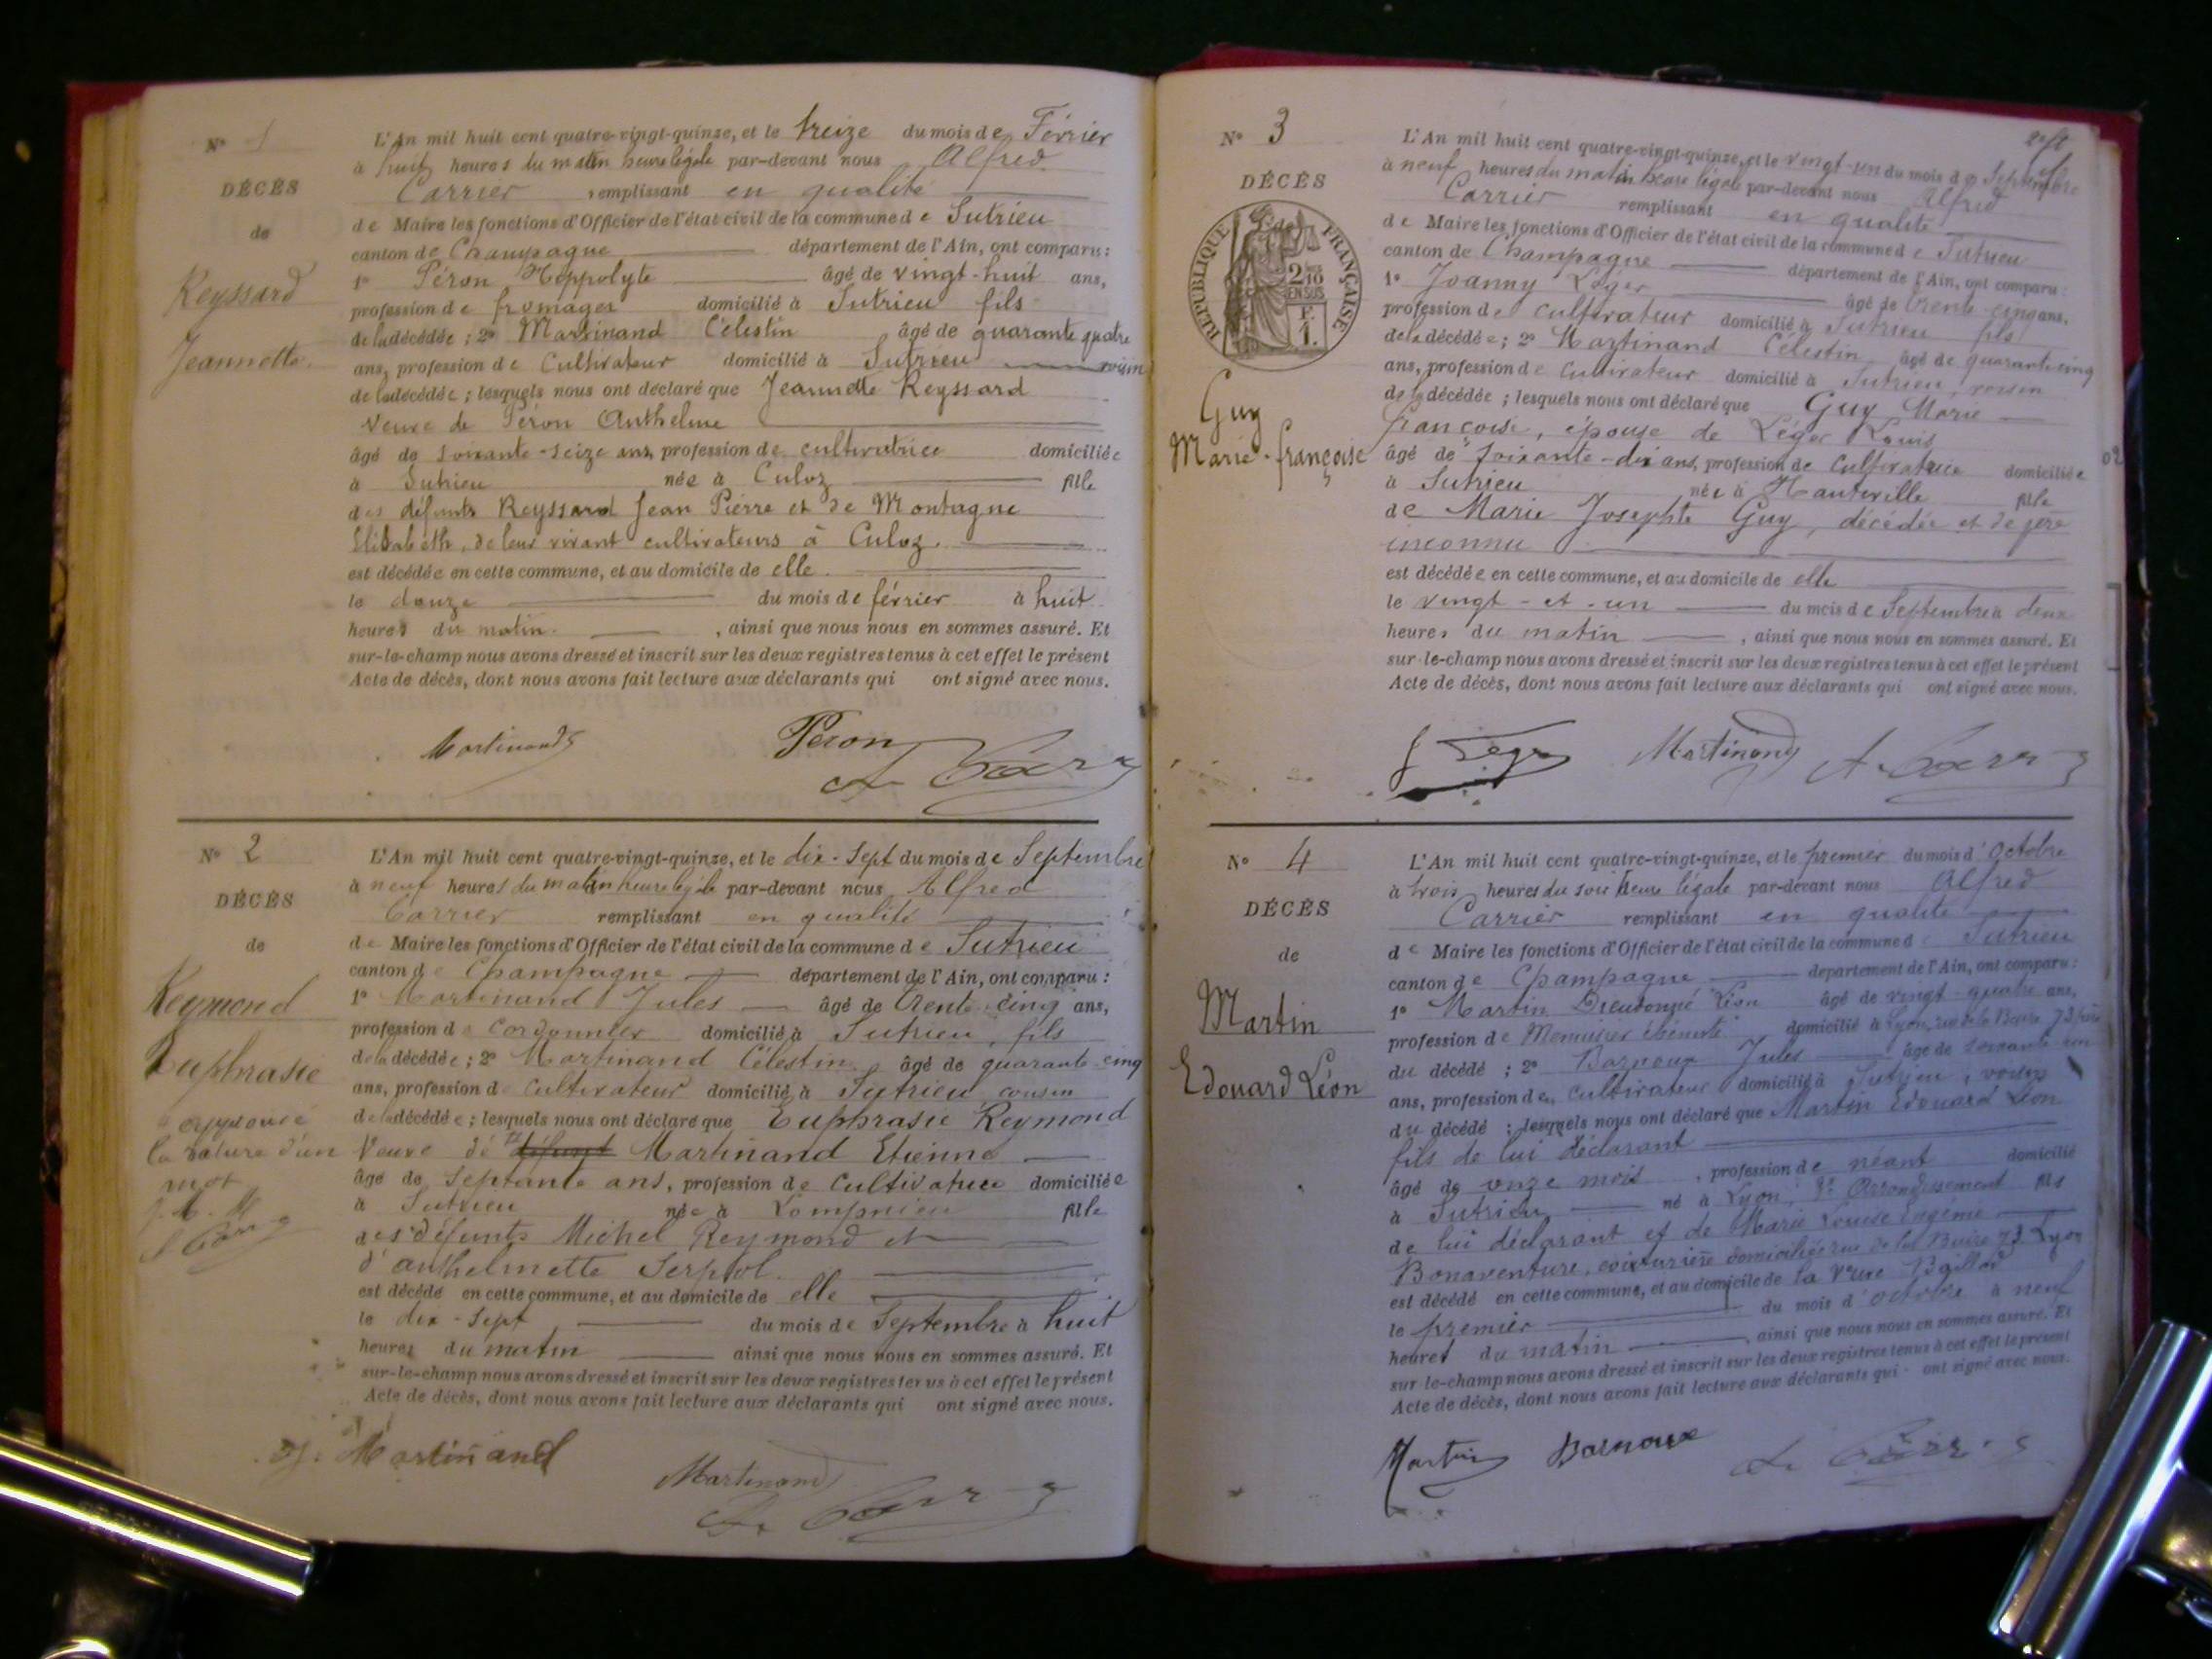 N° 1
DÉCÈS
de
Reyssard
Jeannette.
L'An mil huit cent quatre-vingt-quinze, et le treize du mois de Février
à huit heures du matin heure légale par-devant nous Alfred
Carrier remplissant en qualité
de Maire les fonctions d'Officier de l'état civil de la commune de Sutrieu
canton de Champagne département de l'Ain, ont comparu:
1° Péron Hippolyte âgé de vingt-huit ans,
profession de fromager domicilié à Sutrieu fils
de la décédée ; 2° Martinand Célestin âgé de quarante quatre
ans, profession de Cultivateur domicilié à Sutrieu voisin
de la décédée ; lesquels nous ont déclaré que Jeannette Reyssard
Veuve de Péron Anthelme
âgé de soixante-seize ans, profession de cultivatrice domiciliée
à Sutrieu née à Culoz fille
des défunts Reyssard Jean Pierre et de Montagne
Elisabeth, de leur vivant cultivateurs à Culoz.
est décédée en cette commune, et au domicile de elle.
le douze du mois de février à huit
heures du matin. , ainsi que nous nous en sommes assuré. Et
sur-le-champ nous avons dressé et inscrit sur les deux registres tenus à cet effet le présent
Acte de décès, dont nous avons fait lecture aux déclarants qui ont signé avec nous.
Martinand Péron
N° 2
DÉCÈS
de
Reymond
Euphrasie
approuvé
la rature d'un
mot
L'An mil huit cent quatre-vingt-quinze, et le dix-sept du mois de Septembre
à neuf heures du matin heure légale par-devant nous Alfred
Carrier remplissant en qualité
de Maire les fonctions d'Officier de l'état civil de la commune de Sutrieu
canton de Champagne département de l'Ain, ont comparu :
1° Martinand Jules âgé de trente-cinq ans,
profession de Cordonnier domicilié à Sutrieu, fils
de la décédée ; 2° Martinand Célestin âgé de quarante cinq
ans, profession de Cultivateur domicilié à Sutrieu cousin
de la décédée ; lesquels nous ont déclaré que Euphrasie Reymond
Veuve de défunt Martinand Etienne
âgé de Septante ans, profession de Cultivatrice domiciliée
à Sutrieu née à Lompnieu fille
des défunts Michel Reymond et
d'anthelmette Serpol.
est décédé en cette commune, et au domicile de elle
le dix-sept du mois de Septembre à huit
heures du matin ainsi que nous nous en sommes assuré. Et
sur-le-champ nous avons dressé et inscrit sur les deux registres tenus à cet effet le présent
Acte de décès, dont nous avons fait lecture aux déclarants qui ont signé avec nous.
J. Martinand
Martinand
N° 3
DÉCÈS
RÉPUBLIQUE FRANÇAISE
2/10
EN SUS
F.
1.
Guy
Marie-françoise
L'An mil huit cent quatre-vingt-quinze, et le vingt-un du mois de Septembre
à neuf heures du matin heure légale par-devant nous Alfred
Carrier remplissant en qualité
de Maire les fonctions d'Officier de l'état civil de la commune de Sutrieu
canton de Champagne département de l'Ain, ont comparu :
1° Joanny Léger âgé de trente-cinq ans,
profession de cultivateur domicilié à Sutrieu fils
de la décédée ; 2° Martinand Célestin âgé de quarante cinq
ans, profession de Cultivateur domicilié à Sutrieu, voisin
de la décédée ; lesquels nous ont déclaré que Guy Marie
françoise, épouse de Léger Louis
âgé de Soixante-dix ans, profession de Cultivatrice domiciliée
à Sutrieu née à Hauteville fille
de Marie Josephte Guy, décédée et de père
inconnu
est décédée en cette commune, et au domicile de elle
le vingt-et-un du mois de Septembre à deux
heures du matin , ainsi que nous nous en sommes assuré. Et
sur-le-champ nous avons dressé et inscrit sur les deux registres tenus à cet effet le présent
Acte de décès, dont nous avons fait lecture aux déclarants qui ont signé avec nous.
J Léger Martinand
N° 4
DÉCÈS
de
Martin
Edouard Léon
L'An mil huit cent quatre-vingt-quinze, et le premier du mois d'Octobre
à trois heures du soir heure légale par-devant nous Alfred
Carrier remplissant en qualité
de Maire les fonctions d'Officier de l'état civil de la commune de Sutrieu
canton de Champagne département de l'Ain, ont comparu :
1° Martin Dieudonné Léon âgé de vingt-quatre ans,
profession de Menuisier ébéniste domicilié à Lyon, rue de la Buire 73 père
du décédé ; 2° Barnoux Jules âgé de soixante
ans, profession de Cultivateur domicilié à Sutrieu, voisin
du décédé ; lesquels nous ont déclaré que Martin Edouard Léon
fils de lui déclarant
âgé de onze mois, profession de néant domicilié
à Sutrieu né à Lyon, Arrondissement fils
de lui déclarant et de Marie Louise Eugénie
Bonaventure, couturière domiciliée rue de la Buire 73 Lyon
est décédé en cette commune, et au domicile de la Veuve
le premier du mois d'octobre à neuf
heures du matin , ainsi que nous nous en sommes assuré. Et
sur-le-champ nous avons dressé et inscrit sur les deux registres tenus à cet effet le présent
Acte de décès, dont nous avons fait lecture aux déclarants qui ont signé avec nous.
Martin Barnoux